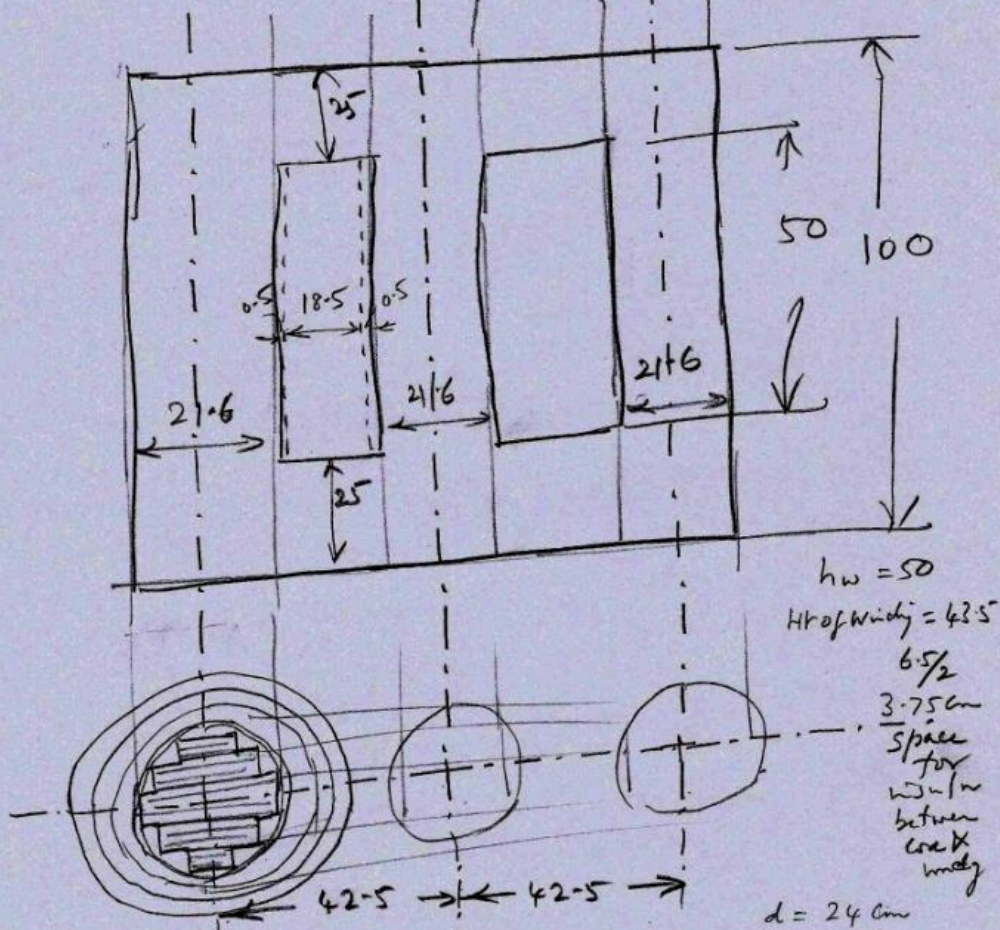 25
50
100
0.5 18.5 0.5
21.6
21.6
21.6
25
hw = 50
Ht of windg = 43.5
6.5/2
3.75cm
space
for
between
core &
windg
42.5 42.5
d = 24 cm